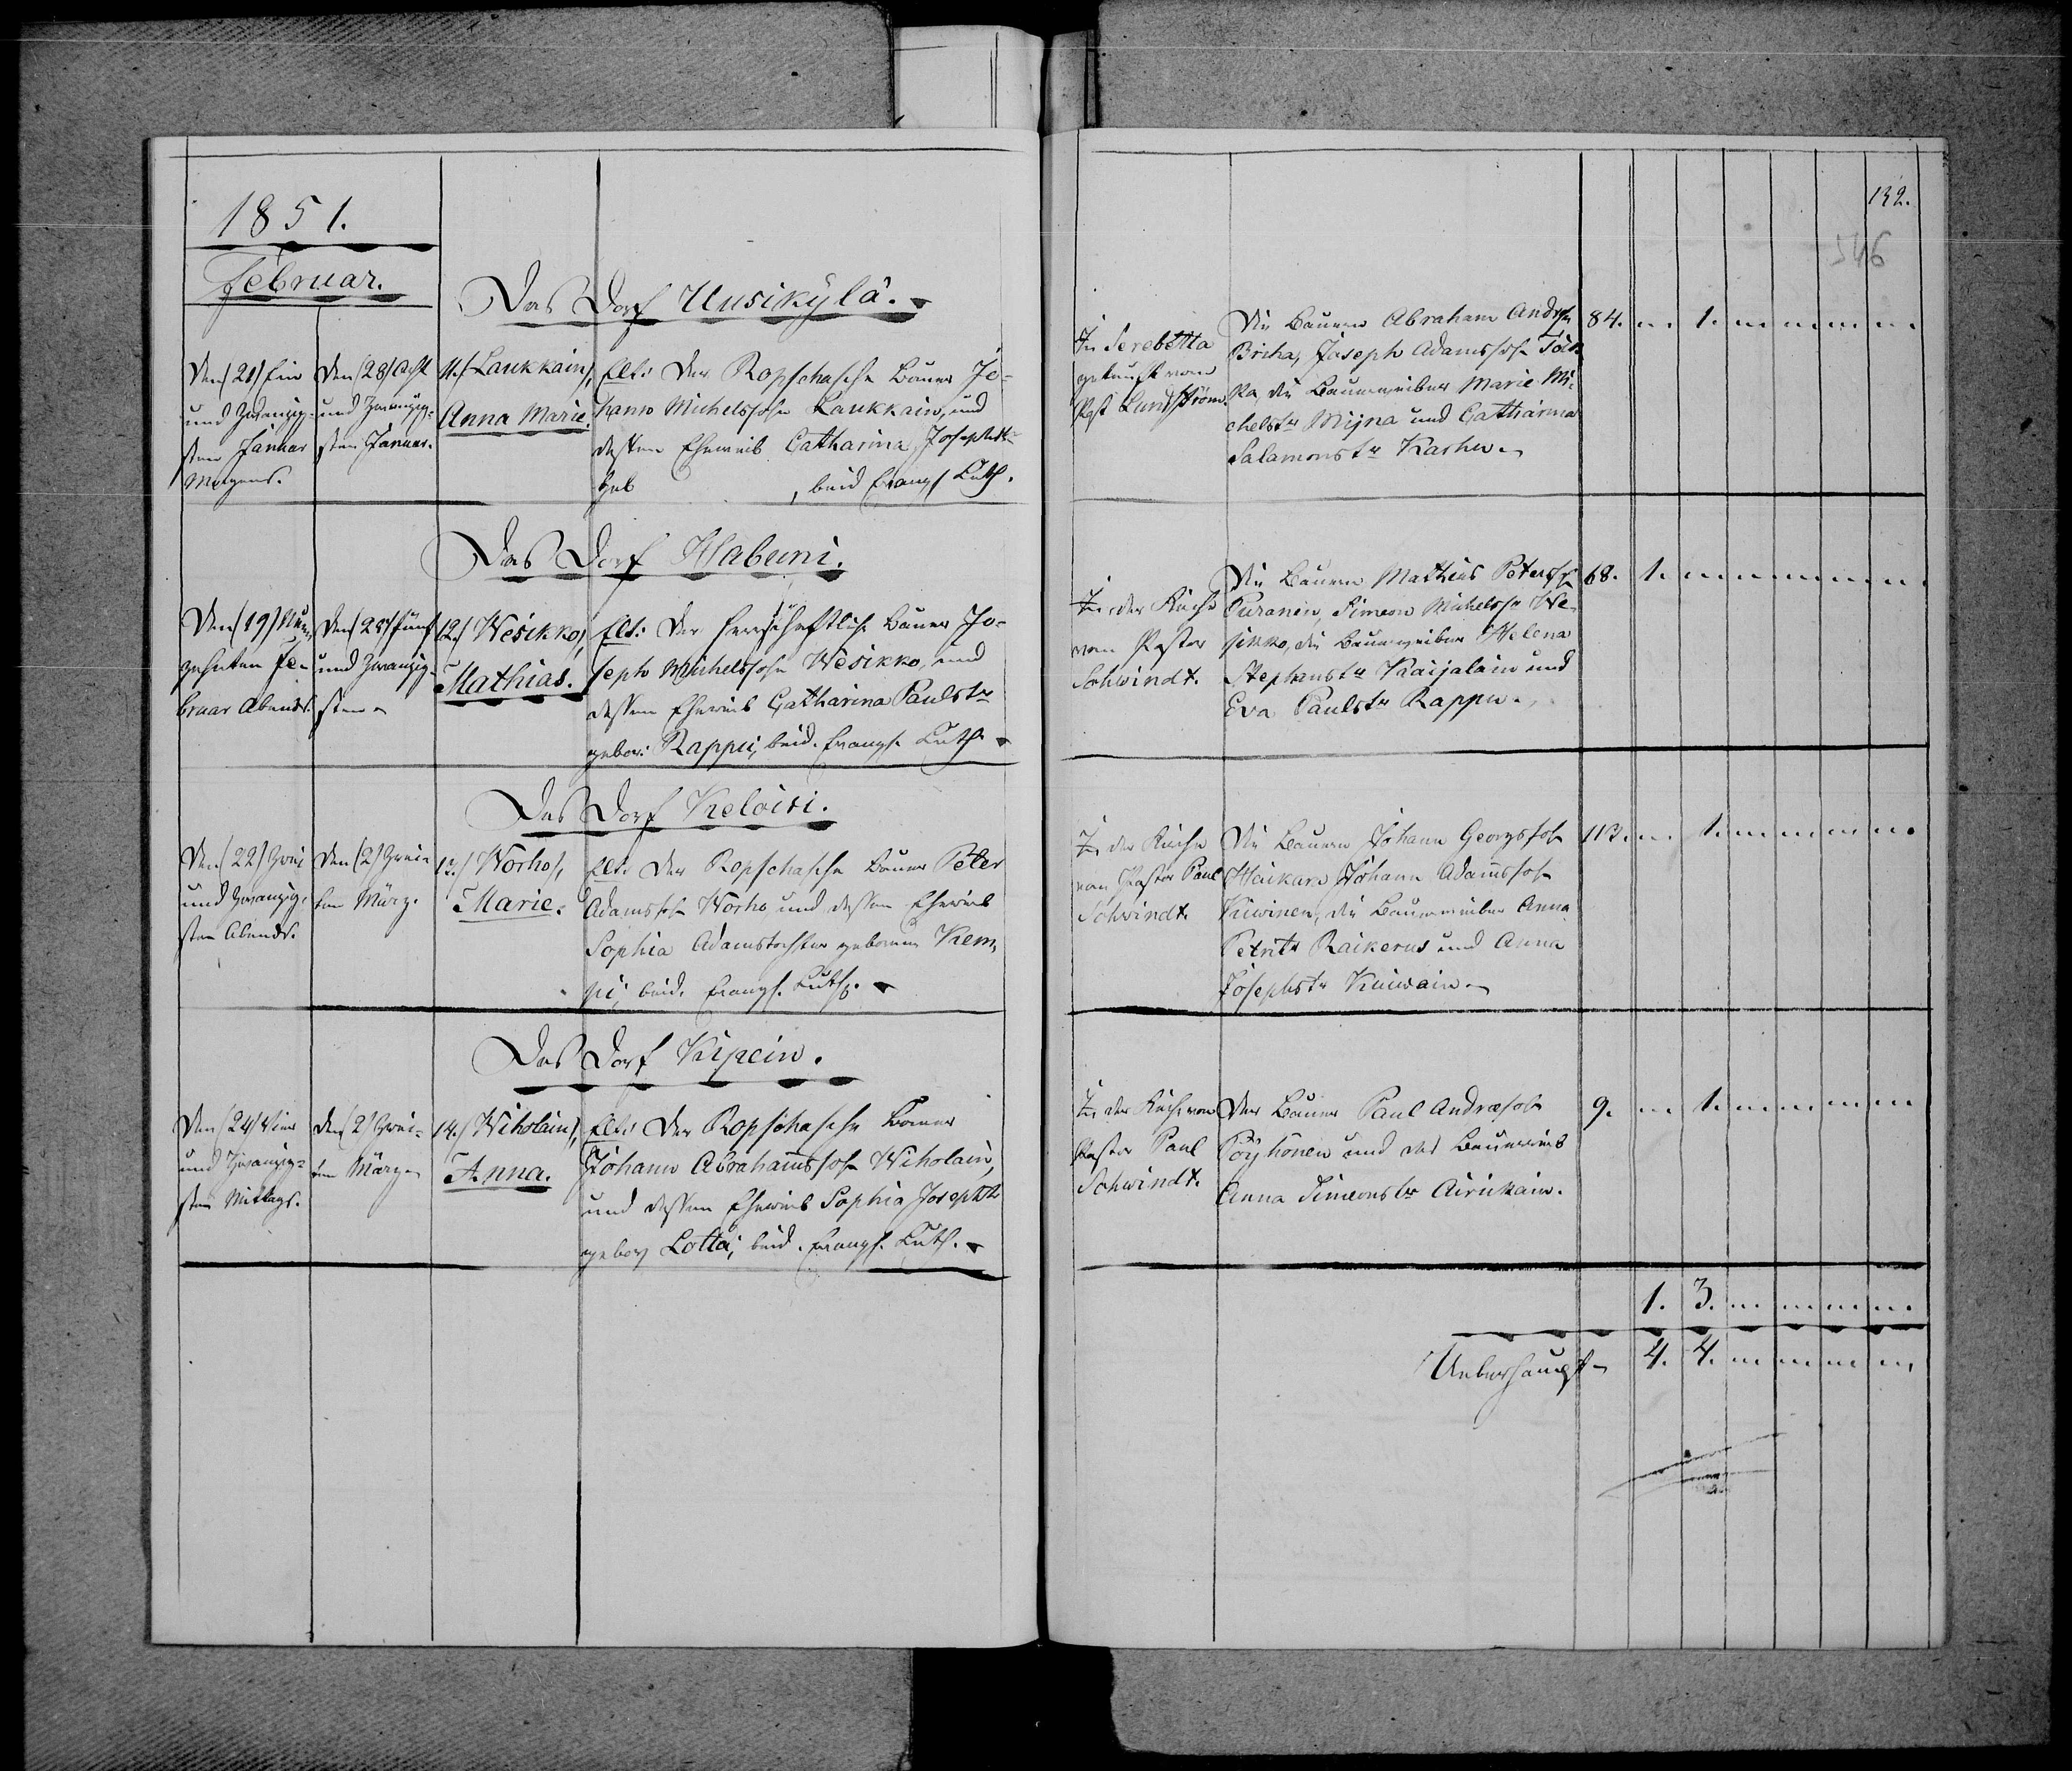 1851.
Februar.
Das Dorf Uusikylä.
Den (21) Ein
und Zwanzig-
sten Januar
Morgens.
Den (28) Acht
und Zwanzig-
sten Januar.
11.) Laukkain,
Anna Marie.
Elt: Der Ropschasche Bauer Jo-
hann Michelssohn Laukkain, und
dessen Eheweib Catharina Josephstr
geb , beid Evangl Luth.
Das Dorf Habuni.
Den (19) Neun-
zehnten Fe-
bruar Abends.
Den (25) fünf
und Zwanzig-
sten
12.) Wesikko,
Mathias.
Elt: Der herrschaftliche Bauer Jo-
seph Michelssohn Wesikko, und
dessen Eheweib Catharina Paulstr
gebor: Rappu, beid. Evangl. Luth
Das Dorf Keloisi.
Den (22) Zwei
und Zwanzig-
sten Abends.
Den (2) Zwei-
ten März.
13.) Worho,
Marie.
Elt. Der Ropschasche Bauer Peter
Adamssohn Worho und dessen Eheweib
Sophia Adamstochter geborene Kem-
pi, beid. Evangl. Luth.
Das Dorf Kipein.
Den (24) Vier
und Zwanzig-
sten Mittags.
Den (2) Zwei-
ten März
14.) Wiholain,
Anna.
Elt: Der Ropschasche Bauer
Johann Abrahamssohn Wiholain,
und dessen Eheweib Sophia Josephtr
gebor Lotta, beid. Evangl. Luth.
132.
546
In Serebetta
getauft von
Past Lundström.
Die Bauern Abraham Andrssn
Briha, Joseph Adamssohn
die Bauerweiber Marie Mi-
chelstr Mijna und Catharina
Salamonstr Karhu.
84. 1.
In der Kirche
vom Pastor
Schwindt.
Die Bauern Mathias Peterssn
Puranen, Simeon Michelssn We-
sikko, die Bauerweiber Helena
Stephanstr Karjalain und
Eva Paulstr Rappu.
68. 1.
In der Kirche
von Pastor Paul
Schwindt.
Die Bauern Johann Georgssohn
Haikara Johann Adamssohn
Kiuwinen, die Bauerweiber Anna
Petritr Raikerus und Anna
Josephstr Kuiwain
113. 1.
In der Kirche von
Pastor Paul
Schwindt.
Der Bauer Paul Andrsohn
Pöyhönen und das Bauerweib
Anna Simeonstr Airikain.
9. 1.
1. 3.
Ueberhaupt 4. 4.